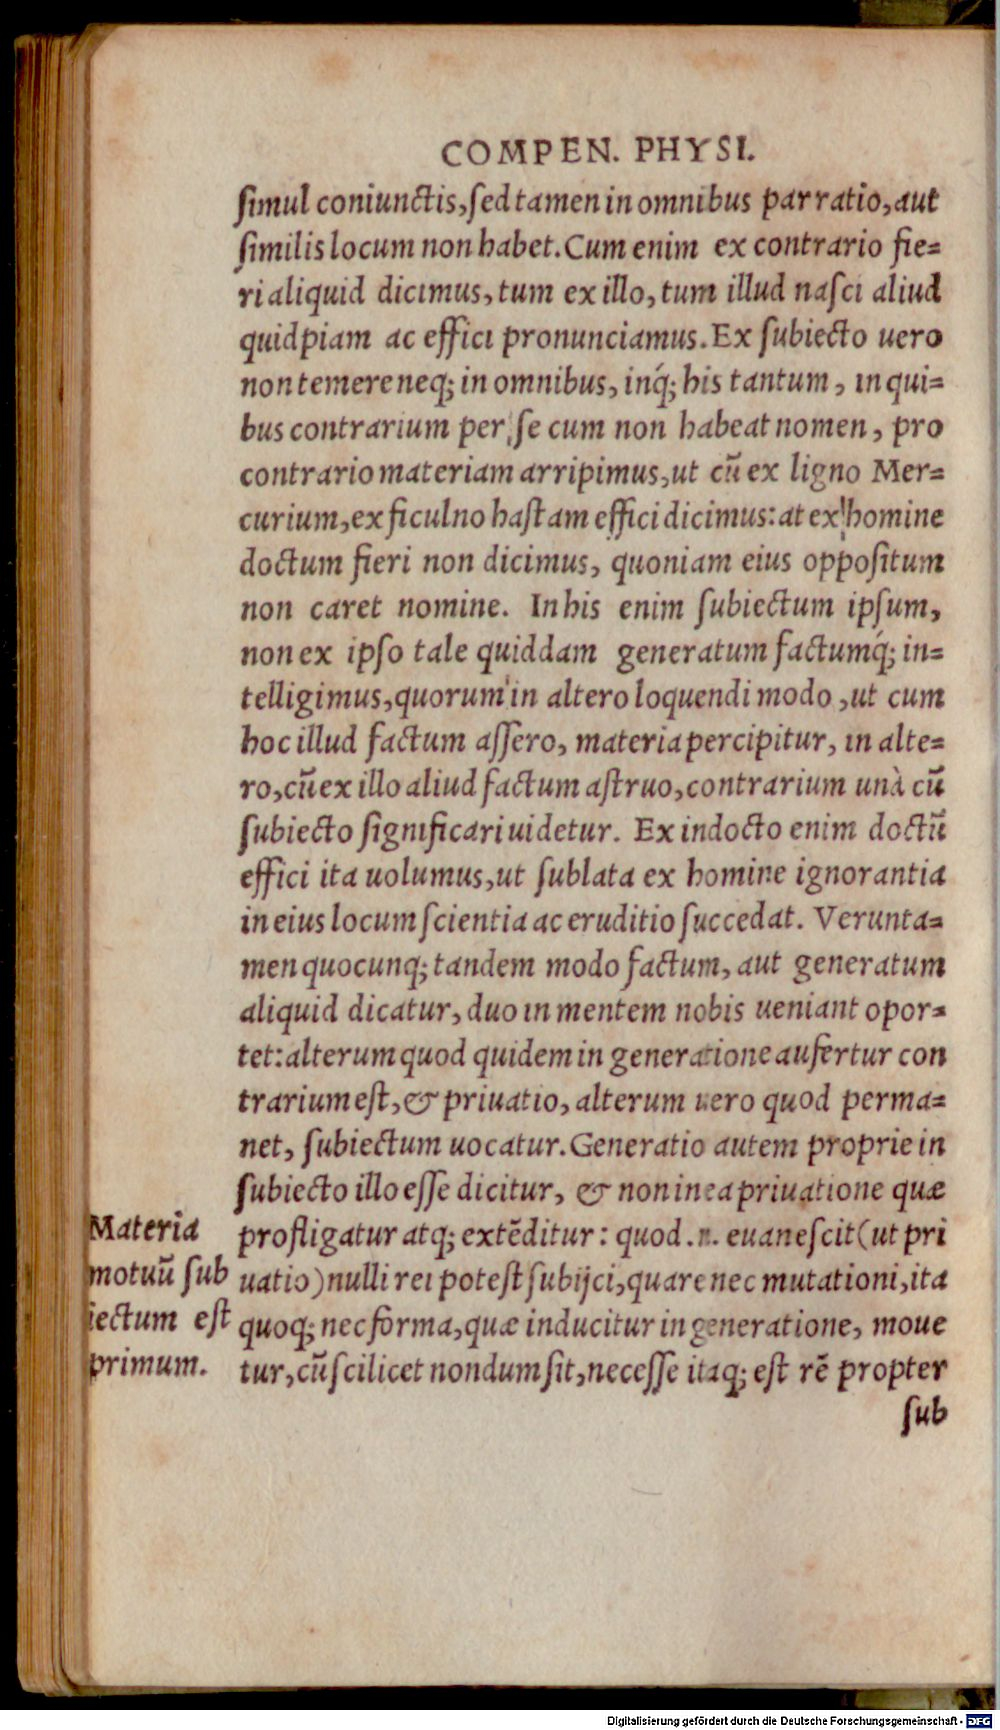 COMPEN. PHYSI.
simul coniunctis, sed tamen in omnibus par ratio, aut
similis locum non habet. Cum enim ex contrario fie=
ri aliquid dicimus, tum ex illo, tum illud nasci aliud
quidpiam ac effici pronunciamus. Ex subiecto uero
non temere neq; in omnibus, inq́; his tantum, in qui=
bus contrarium per se cum non habeat nomen, pro
contrario materiam arripimus, ut cũ ex ligno Mer=
curium, ex ficulno hastam effici dicimus: at ex homine
doctum fieri non dicimus, quoniam eius oppositum
non caret nomine. In his enim subiectum ipsum,
non ex ipso tale quiddam generatum factumq́; in=
telligimus, quorum in altero loquendi modo, ut cum
hoc illud factum assero, materia percipitur, in alte=
ro, cũ ex illo aliud factum astruo, contrarium unà cũ
subiecto significari uidetur. Ex indocto enim doctũ
effici ita uolumus, ut sublata ex homine ignorantia
in eius locum scientia ac eruditio succedat. Verunta=
men quocunq; tandem modo factum, aut generatum
aliquid dicatur, duo in mentem nobis ueniant opor=
tet: alterum quod quidem in generatione aufertur con
trarium est, & priuatio, alterum uero quod perma=
net, subiectum uocatur. Generatio autem proprie in
subiecto illo esse dicitur, & non in ea priuatione quæ
profligatur atq; extẽditur: quod .n. euanescit (ut pri
uatio) nulli rei potest subijci, quare nec mutationi, ita
quoq; nec forma, quæ inducitur in generatione, moue
tur, cũ scilicet nondum sit, necesse itaq; est rẽ propter
sub
Materia
motuũ sub
iectum est
primum.
Digitalisierung gefördert durch die Deutsche Forschungsgemeinschaft - DFG